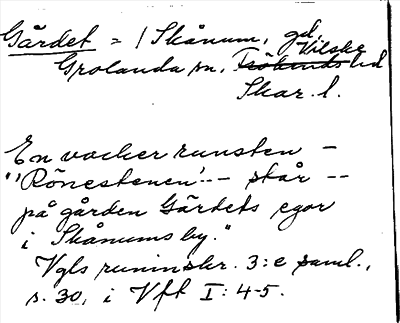 Gärdet = / Skånum, gd,
Vilske
Grolanda sn, Frökinds hd
Skar. l.
En vacker runsten –
"'Rönestenen' -- står --
på gården Gärdets egor
i Skånums by."
Vgls runinskr. 3:e saml.,
s. 30, i Vft I: 4-5.